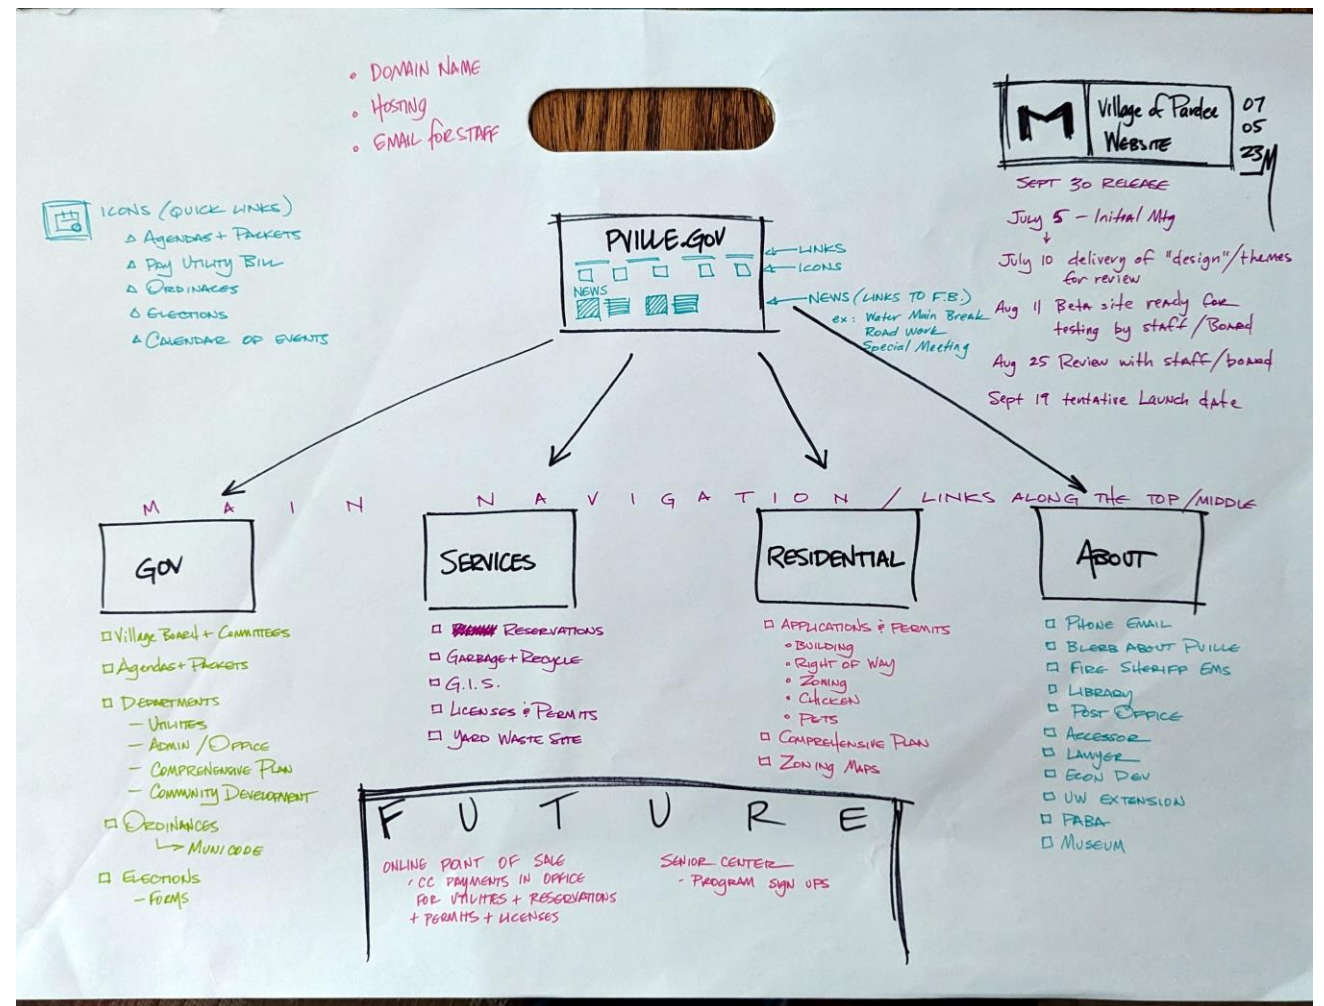 • DOMAIN NAME
• HOSTING
• EMAIL FOR STAFF
M
Village of Pardee
WEBSITE
07
05
23
SEPT 30 RELEASE
July 5 – Initial Mtg
July 10 delivery of "design"/themes
for review
Aug 11 Beta site ready for
testing by staff/Board
Aug 25 Review with staff/board
Sept 19 tentative Launch date
ICONS (QUICK LINKS)
AGENDAS + PACKETS
PAY UTILITY BILL
ORDINACES
ELECTIONS
CALENDAR OF EVENTS
PVILLE.GOV
NEWS
LINKS
ICONS
NEWS (LINKS TO F.B.)
ex: Water Main Break
Road Work
Special Meeting
MAIN NAVIGATION / LINKS ALONG THE TOP/MIDDLE
GOV
Village Board + Committees
Agendas + Packets
DEPARTMENTS
– UTILITES
– ADMIN / OFFICE
– COMPREHENSIVE PLAN
– COMMUNITY DEVELOPMENT
ORDINANCES
MUNICODE
ELECTIONS
– FORMS
SERVICES
RESERVATIONS
GARBAGE + RECYCLE
G.I.S.
LICENSES & PERMITS
YARD WASTE SITE
RESIDENTIAL
APPLICATIONS & PERMITS
• BUILDING
• RIGHT OF WAY
• ZONING
• CHICKEN
• PETS
COMPREHENSIVE PLAN
ZONING MAPS
ABOUT
PHONE EMAIL
BLERB ABOUT PVILLE
FIRE SHERIFF EMS
LIBRARY
POST OFFICE
ACCESSOR
LAWYER
ECON DEV
UW EXTENSION
PABA
MUSEUM
FUTURE
ONLINE POINT OF SALE
CC PAYMENTS IN OFFICE
FOR UTILITIES + RESERVATIONS
+ PERMITS + LICENSES
SENIOR CENTER
- PROGRAM SIGN UPS